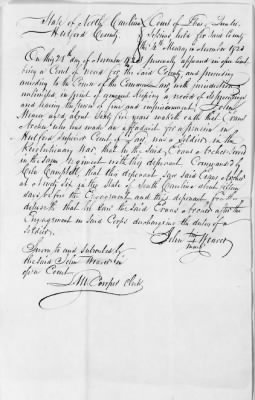 State of North Carolina } Court of Pleas, Quarter
Hertford County } Sessions held for said County
the 4th Monday in November 1820
On this 28th day of November 1820 personally appeared in open Court
being a Court of record for the said County and proceeding
according to the Course of the Common law with jurisdiction
unlimited in point of amount keeping a record of
and having the power of fine and imprisonment, John
Weaver aged about Sixty five years maketh oath that Evans
Archer who has made an affidavit for a pension in
Hertford Superior Court of Law, was a Soldier in the
Revolutionary War, that he the said Evans Archer served
in the same Regiment with this deponent Commanded by
Campbell, that this deponent saw said Evans Archer
at Ninety Six in the State of South Carolina about
days before the Engagement and this deponent further
deposeth that he saw the said Evans Archer after the
Engagement in said Corps discharging the duties of a
Soldier.
John Weaver
mark
Sworn to and subscribed by
the said John Weaver in
open Court
L M Cowper Clerk